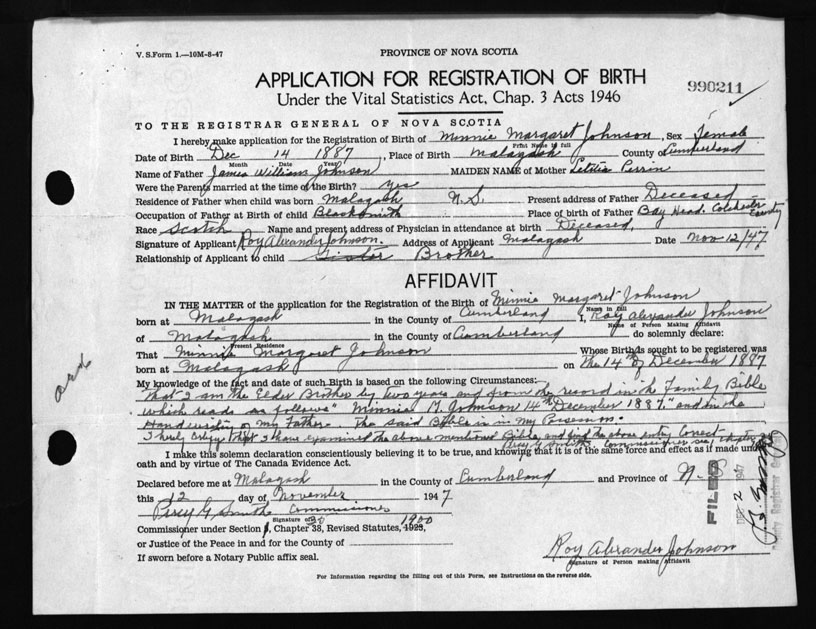 V. S. Form 1.—10M-8-47
PROVINCE OF NOVA SCOTIA
APPLICATION FOR REGISTRATION OF BIRTH
990211
Under the Vital Statistics Act, Chap. 3 Acts 1946
TO THE REGISTRAR GENERAL OF NOVA SCOTIA
I hereby make application for the Registration of Birth of Minnie Margaret Johnson, Sex Female
Print Name in full
Date of Birth Dec 14 1887, Place of Birth Malagash County of Cumberland
Month Date Year
Name of Father James William Johnson MAIDEN NAME of Mother Letitia Perrin
Were the Parents married at the time of the Birth? Yes
Residence of Father when child was born Malagash N.S. Present address of Father Deceased
Occupation of Father at Birth of child Blacksmith Place of birth of Father Bay Head. Colchester County
Race Scotch Name and present address of Physician in attendance at birth Deceased,
Signature of Applicant Roy Alexander Johnson. Address of Applicant Malagash Date Nov 12/47
Relationship of Applicant to child Sister Brother
AFFIDAVIT
IN THE MATTER of the application for the Registration of the Birth of Minnie Margaret Johnson
Name in full
born at Malagash in the County of Cumberland I, Roy Alexander Johnson
Name of Person Making Affidavit
of Malagash in the County of Cumberland do solemnly declare:
Present Residence
That Minnie Margaret Johnson Whose Birth is sought to be registered was
born at Malagash on the 14th of December 1887
My knowledge of the fact and date of such Birth is based on the following Circumstances:
That I am the Elder Brother by two years and from the record in the Family Bible
which reads as follows "Minnie M. Johnson 14th December 1887." and in the
Handwriting of my Father. The said Bible is in my Possession.
I hereby certify that I have examined the above mentioned Bible and find the above entry Correct
Percy G. Smith Commissioner
I make this solemn declaration conscientiously believing it to be true, and knowing that it is of the same force and effect as if made under
oath and by virtue of The Canada Evidence Act.
Declared before me at Malagash in the County of Cumberland and Province of N.S
this 12 day of November 1947
Percy G. Smith Commissioner
Signature of
30 1900
Commissioner under Section 1, Chapter 38, Revised Statutes, 1923,
or Justice of the Peace in and for the County of
If sworn before a Notary Public affix seal.
Roy Alexander Johnson
Signature of Person making Affidavit
For Information regarding the filling out of this Form, see Instructions on the reverse side.
FILED
DEC 2 1947
Deputy Registrar General